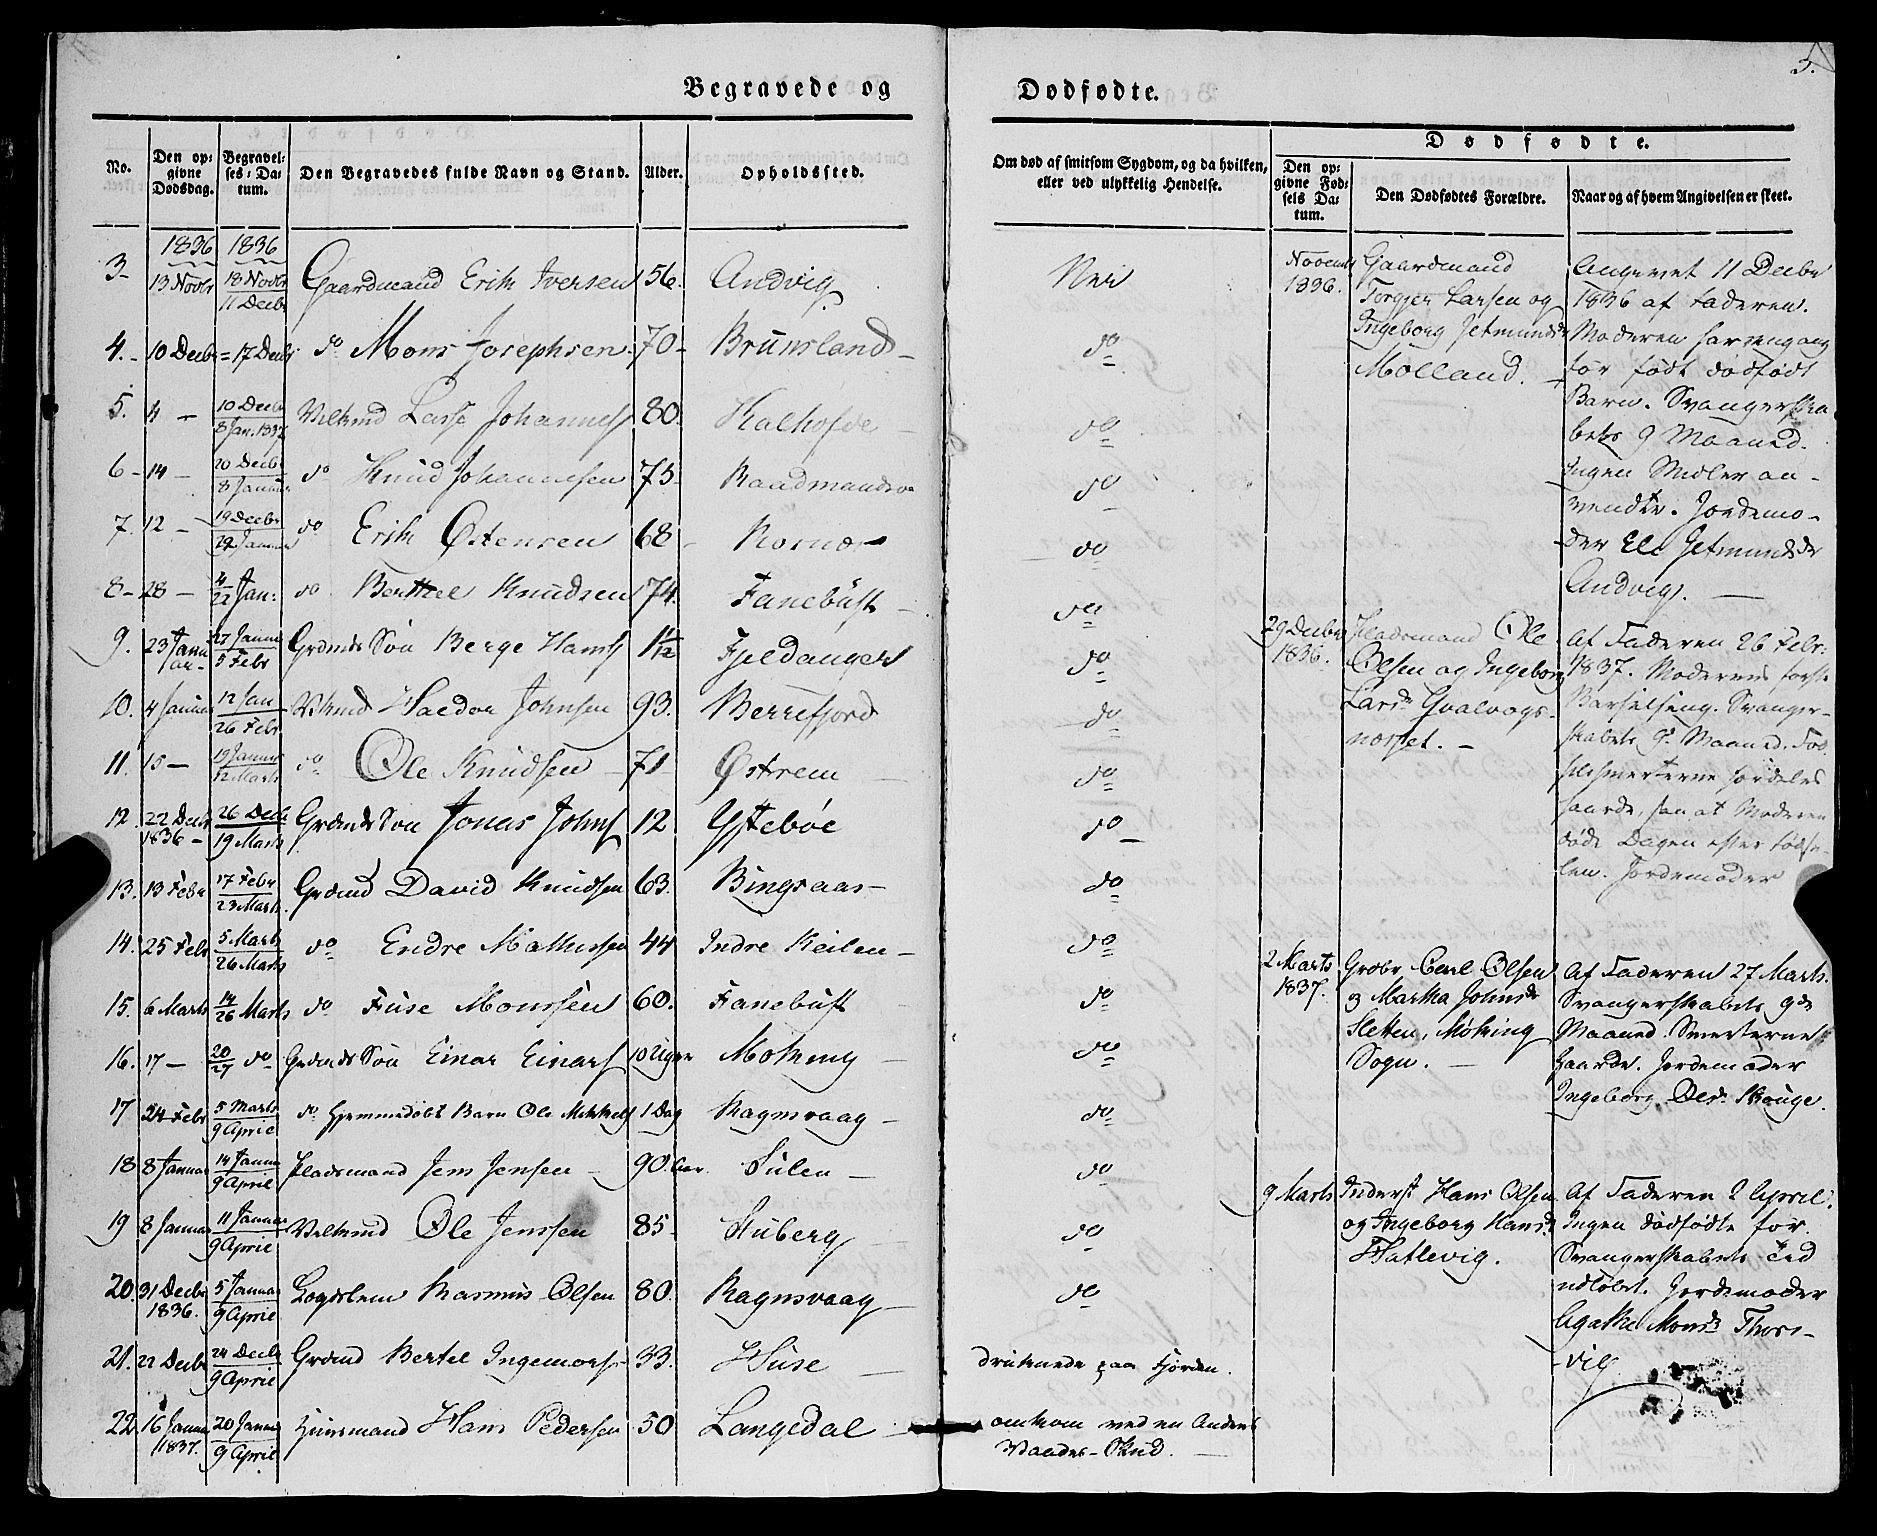 Begravede og Dødfødte.
5.
No. Den opgivne Dødsdag. Begravelses-Datum. Den Begravedes fulde Navn og Stand. Alder. Opholdssted.
Om død af smitsom Sygdom, og da hvilken, eller ved ulykkelig Hendelse.
Dødfødte.
Den opgivne Fødsels Datum. Den Dødfødtes Forældre. Naar og af hvem Angivelsen er skeet.
1836 1836
3- 13 Novbr 18 Novbr 11 Decbr Gaardmand Erik Iversen 56. Andvig Nei
4.- 10 Decbr = 17 Decbr do Mons Josephsen 70- Brunsland- do
5. 4 - 10 Decbr 8 Jan. 1837 Lasse Johannes 80. Kalhofde do
6- 14 - 20 Decbr 8 Januar do Knud Johannesen 75 do
7. 12 - 19 Decbr Januar do Erik Østensen 68 do
8- 28 - 4 22 Jan: do Berthel Knudsen 74. Fanebust do
9. 23 Januar- 27 Januar 5 Febr Grdmds Søn Berge Hans 1 1/12 Fjeldanger do
10. 4 Januar 12 Jan 26 Febr Haldor Johnsen 93. Berrefjord do
11. 15 - 19 Januar 12 Marts do Ole Knudsen 71 Østrem do
12. 22 Decbr 1836 - 26 Decbr 19 Marts Grdmds Søn Jonas Johns 12 Ystebøe do
13. 13 Febr 17 Febr 23 Marts Grdmd David Knudsen 63. Bingsaas- do
14. 25 Febr 5 Marts 26 Marts do Endre Mathissen 44 Indre Keilen- do
15. 6 Marts 14 26 Marts do Fuse Monssen 60. Fanebust do
16. 17 - 20 27 do Grdmds Søn Einar Einars 10 Uger Møkving do
17 24 Febr 5 Marts 9 April do hjemmedøbt Barn Ole Mikkels 1 Dag Ragnsvaag- do
18 8 Januar 14 Januar 9 April Pladsmand Jens Jensen- 90 Aar. Sulen- do
19 8 Januar 11 Januar 9 April Ole Jenssen 85- Stuberg do
20. 31 Decbr 1836. 5 Januar 9 April Lægdslem Rasmus Olsen 80. Ragnsvaag do
21. 22 Decbr 24 Decbr 9 April Grdmd Bertel Ingemars 33. Huse druknede paa Fjorden.
22. 16 Januar 1837. 20 Januar 9 April Huusmand Hans Pedersen 50 Langedal omkom ved en Anden Vaades-Skud.
Novembr 1836.
Gaardmand
Torgjer Larsen og
Ingeborg Jetmundsdr
Molland.
Angivet 11 Decbr
1836 af Faderen.
Moderen har engang
før født dødfødt
Barn. Svangerska-
bets 9 Maaned.
Ingen Midler an-
vendte. Jordemo-
der Eli Jetmundsdr
Andvig.
29 Decbr 1836.
Pladsmand Ole
Olsen og Ingeborg
Larsdr Hvalvogs-
næsset. -
Af Faderen 26 Febr:
1837. Moderens første
Barselseng. Svanger-
skabets 9. Maaned. Fød-
selsmerterne
haarde, saa at Moderen
døde Dagen efter Fødse-
len. Jordemoder
2 Marts 1837.
Grdbr Carl Olsen
og Martha Johnsdr
Sletten, Møkving
Sogn. -
Af Faderen 27 Marts.
Svangerskabets 9de
Maaned. Smerterne
haarde. Jordemoder
Ingeborg Skouge.
9 Marts
Inderst Hans Olsen
og Ingeborg Hansdr
Hatlevig.
Af Faderen 2 April.
Ingen dødfødte før.
Svangerskabets Tid
udløbet. Jordemoder
Agathe Monsdr Thors-
vig